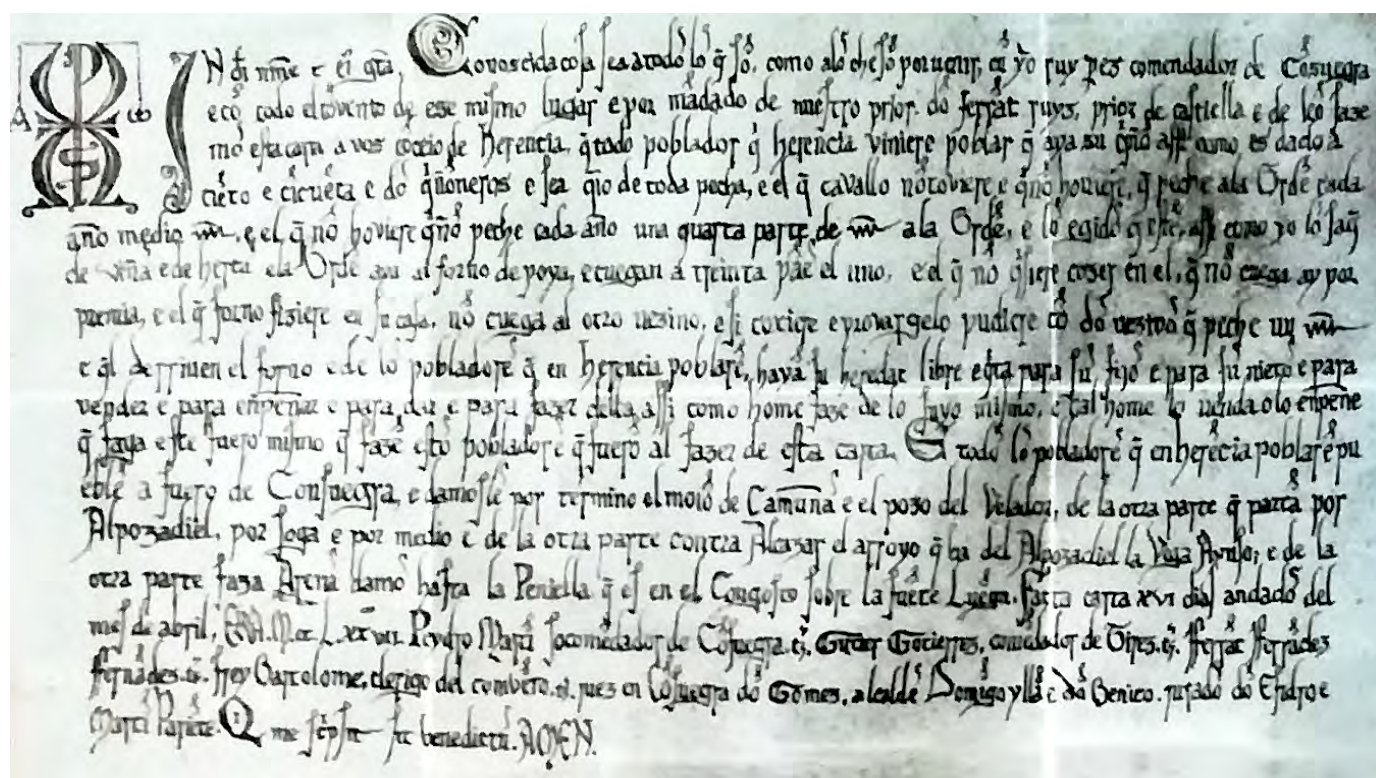 IN dei nne e ei gra, Conoscida cosa sea a todos los q̃ sõ, como alos che sõ por uenir, cũ yo ruy pẽs comendador de Cõsuegra
e cõ todo el covento de ese mismo lugar e por mãdado de nuestro prior, dõ ferrãt ruys, prior de castiella e de leõ faze
mos esta carta a vos cõcio de herencia, q̃ todo poblador q̃ herencia viniere poblar q̃ aya su q̃ño assi como es dado a
ciẽto e cĩcuẽta e dos q̃ñoneros e sea q̃to de toda pecha, e el q̃ cavallo nõ toviere e q̃ño hoviere, q̃ peche ala Ordẽ cada
año medio mr, e el q̃ nõ hoviere q̃ño peche cada año una quarta parte de mr ala Ordẽ, e los egidos q̃ assi como yo lo
de viña e de ela Ordẽ al forno de poya, e cuegan a treinta pãs el uno, e el q̃ nõ q̃siere coser en el, q̃ nõ cuega ay por
premia, e el q̃ forno fiziere en su casa, nõ cuega al otro uesino, e si coxiere e provargelo pudiere cõ dos q̃ peche un mr
e q̃l derriuen el forno e de los pobladores q̃ en herencia poblarẽ, hayã su heredat libre e q̃ta para sus fijos e para sus nietos e para
vender e para enpenar e para dar e para fazer della assi como home faze de lo suyo mismo, e tal home lo uenda o lo enpene
q̃ faga este fuero mismo q̃ fazẽ estos pobladores q̃ fuerõ al fazer de esta carta. E todos los pobladores q̃ en herẽcia poblarẽ pu
eblẽ a fuero de Consuegra, e damosles por termino el mojõ de Camuñas e el pozo del Velador, de la otra parte q̃ partã por
Alpozadiel, por soga e por medio e de la otra parte contra Alcazar el arroyo q̃ ha del Alpozadiel la Vega Ayuso, e de la
otra parte faza Arenas damos hasta la Peniella q̃ es en el Congosto sobre la fuẽte Luẽga. fasta carta xvi dias andados del
mes de abril, Peydro Martĩ socomẽdador de Cõsuegra. ts. Gutier Gotierres, comẽdador de Oires. ts. fferrãt fferrãdes
ffernãdes. ts. frey Bartolome, clerigo del combẽto. ts. jues en Cõsuegra dõ Gomes, alcaldes Domĩgo yllãs e dõ Benito. jurados dõ Esidro e
Martĩ Pariẽte. Qi me scripsit sit benedictus. AMEN.